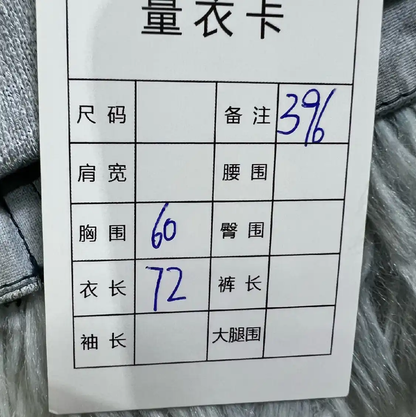 量衣卡
尺码 备注 396
肩宽 腰围
胸围 60 臀围
衣长 72 裤长
袖长 大腿围